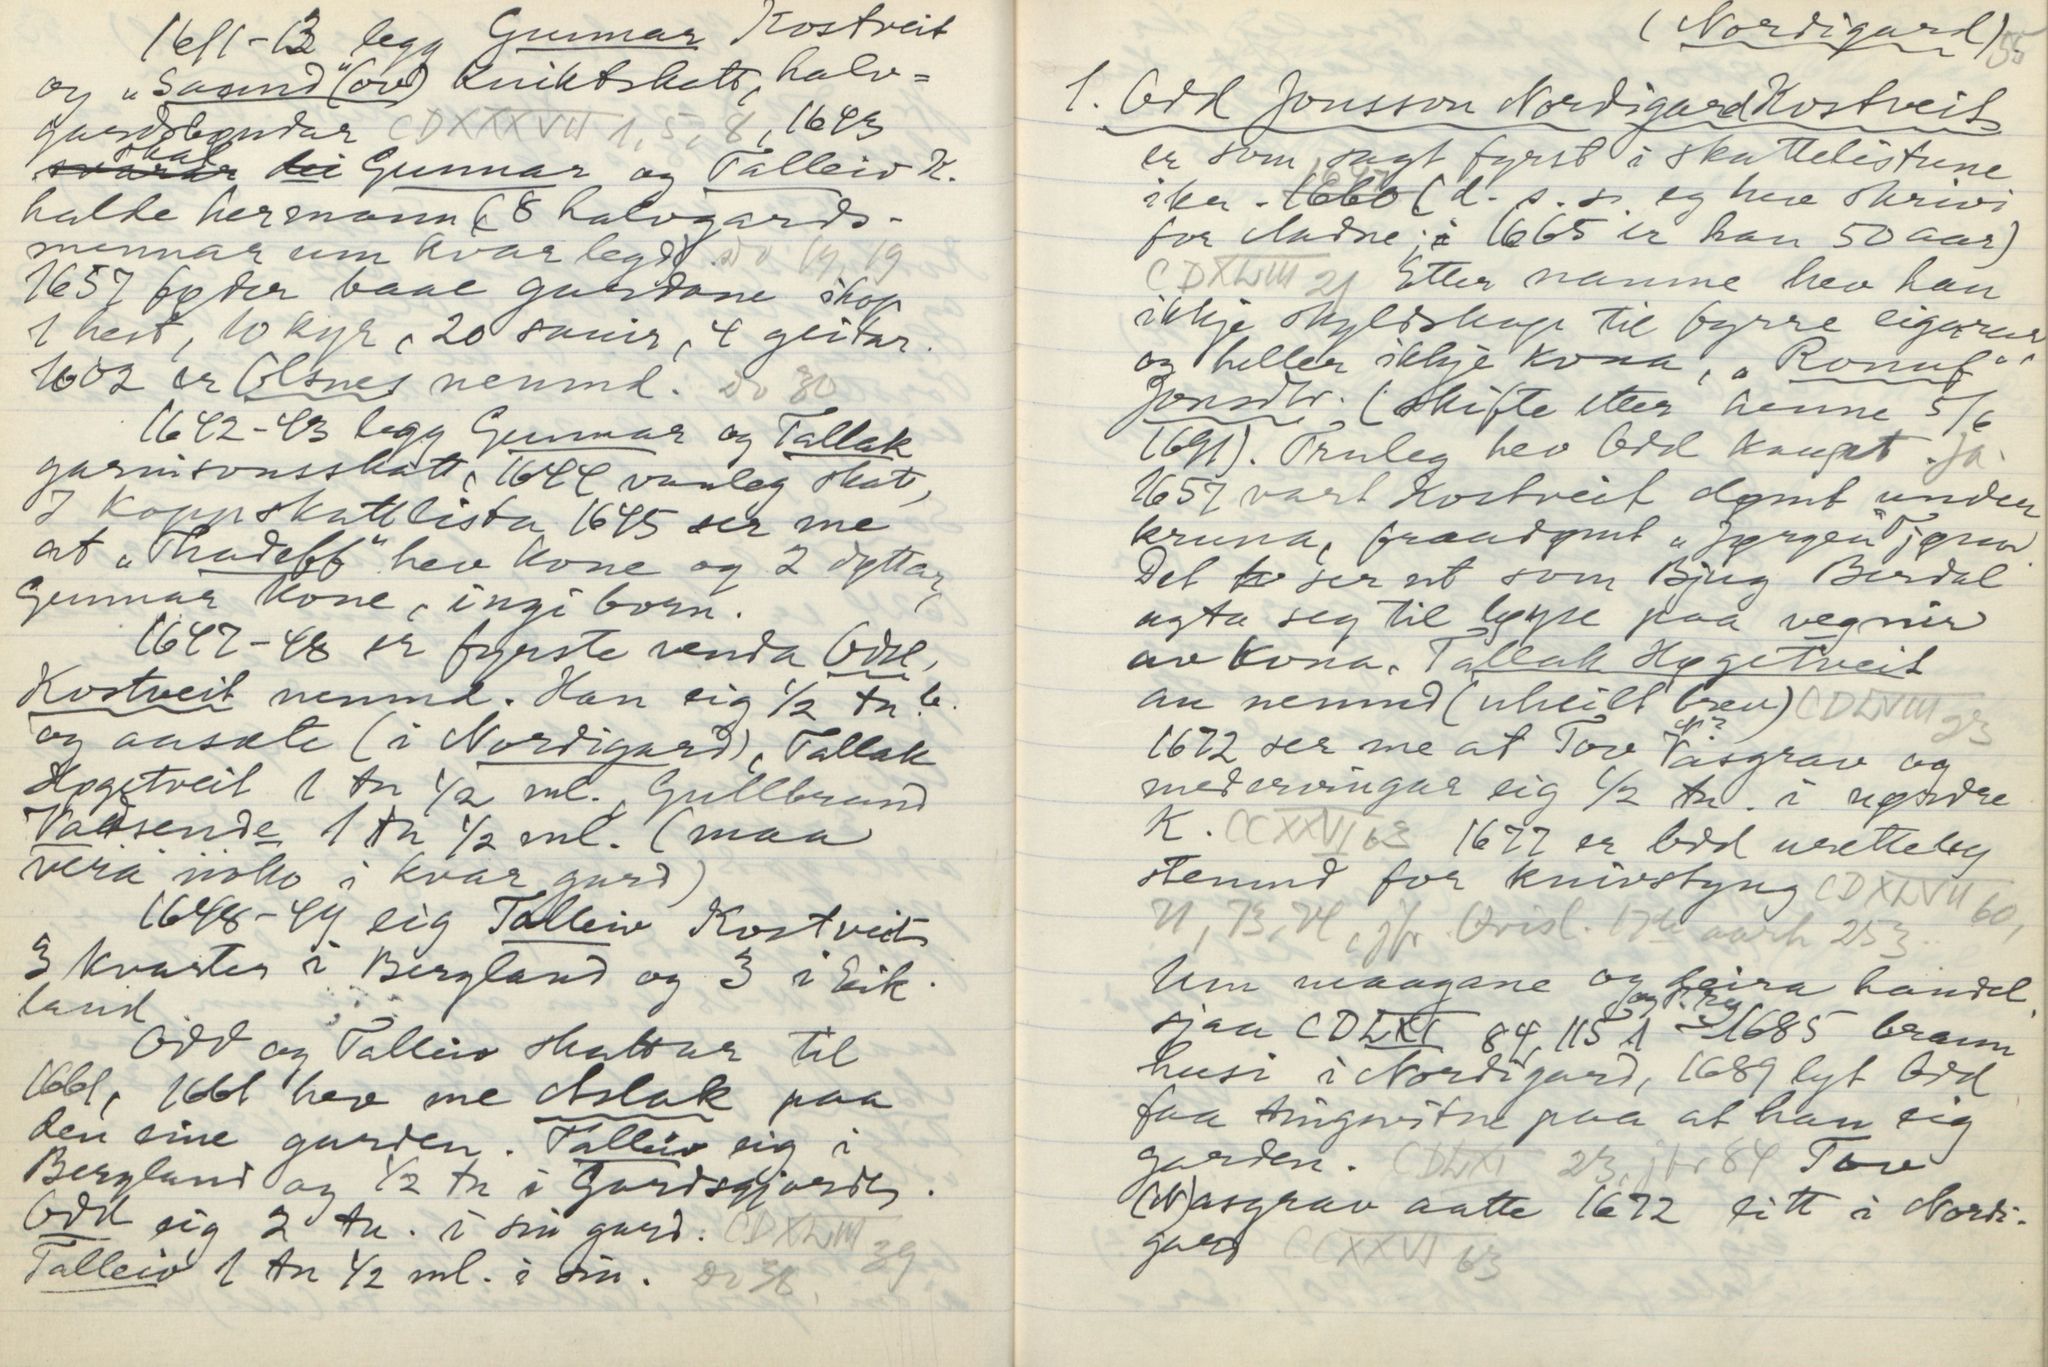 1611-13 legg Gunnar Kostveit
og „Samnd" (ov) kniktskatt, halv=
gardsbøndar CDXXXVII 1, 5, 8, 1643
skal
svarar dei Gunnar og Talleiv K.
halde hermann (8 halvgards-
mennar um kvar legd) Do 19, 19
1657 føder baae gardane ihop
1 hest, 10 kyr, 20 sauir, 4 geitar.
1602 er Olsnes nemnd. Do 30
1642-43 legg Gunnar og Tallak
garnisonsskatt, 1644 vanleg skatt,
I Koppskattlista 1645 ser me
at „Thadeff" hev kone og 2 dyttar,
Gunnar kone, ingi born.
1647-48 er fyrste venda Odd
Kostveit nemnd. Han eig 1/2 tn. b.
og aasæte (i Nordigard), Tallak
Høgetveit 1 tn 1/2 ml., Gullbrand
Vadsende 1 tn 1/2 ml. (maa
vera noko i kvar gard)
1648-49 eig Talleiv Kostveit
3 kvarter i Bergland og 3 i Eik-
land
Odd og Talleiv skattar til
1661, 1661 hev me Aslak paa
den eine garden. Talleiv eig i
Bergland og 1/2 tn i Gardsgjorde.
Odd eig 2 tn. i sin gard. CDXLVIII 39
Talleiv 1 tn 1/2 ml. i sin. Do 38.
(Nordigard) 55
1. Odd Jonsson Nordigard Kostveit
er som sagt fyrst i skattelistune
1647
ikr. 1660 (d. s. s. eg hev skrivi
for Aadne; i 1665 er han 50 aar)
CDXLVIII 21 Etter namne hev han
ikkje skyldskap til fyrre eigarar
og heller ikkje kona, „Ronuf"
Jonsdtr. (skifte etter henne 5/6
1691). Truleg hev Odd kaupt. Ja.
1657 vart Kostveit dømt under
kruna, fraadømt „Jørgen Tjønn
Det ser ut som Bjug Berdal
agta seg til løyse paa vegnir
av kona. Tallak Høgetveit
au nemnd (uheilt brev) CDLVIII 23
1672 ser me at Tov Vasgrav og
medervingar eig 1/2 tn. i nørdre
K. CCXXVI 63 1677 er Odd uretteleg
stemnd for knivstyng CDXLVII 60,
71, 73, 74, jfr. Kvisl. 17de aarh 253
Um maagane og deira handel
sjaa CDLXI 84, 115 1685 brann
husi i Nordigard, 1689 lyt Odd
faa tingvitne paa at han eig
garden. CDLXI 23, jfr 84 Tov
(N)asgrav aatte 1672 eitt i Nordi-
gard CCXXVI 63